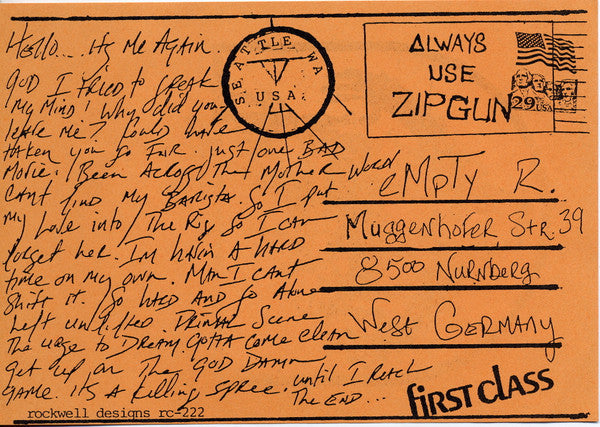 Hello... It's Me Again.
GOD I TRIED to SPEAK
My MIND! Why did you
leave me? Could have
taken you so FAR. Just one BAD
Motic! Been Across The Mother WORD
CANT find My BARista. So I put
my Love into The Rig So I CAN
forget her. I'm havin A HARD
time on My own. Man I CANT
Shift it. So HARD AND So Alone
Left unlifted. Drinkin Scene
The urge to DREAM. GOTTA come clean
Get up on The GOD DAMN
GAME. It's A Killing Spree. until I REACH
The END...
rockwell designs rc-222
SEATTLE, WA
USA
ALWAYS
USE
ZIPGUN
29 USA
eMpTy R.
Muggenhofer Str. 39
8500 Nürnberg
West Germany
first class